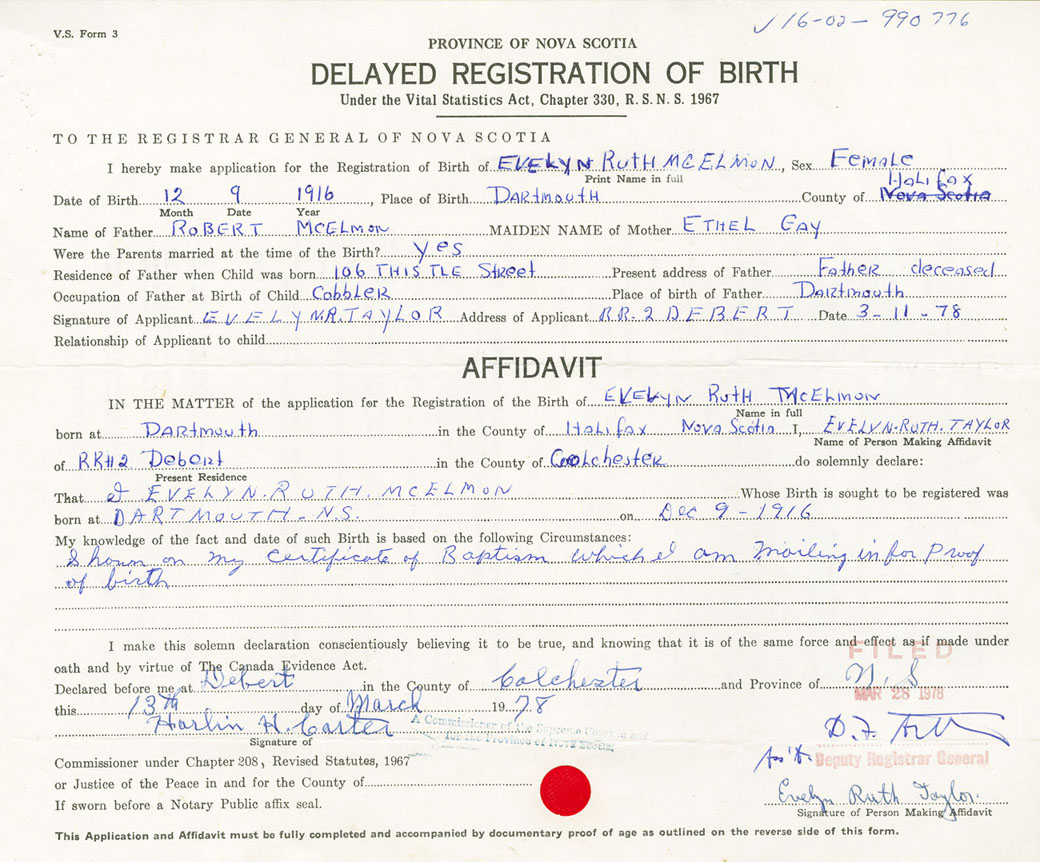 V.S. Form 3
√ 16-02-990776
PROVINCE OF NOVA SCOTIA
DELAYED REGISTRATION OF BIRTH
Under the Vital Statistics Act, Chapter 330, R. S. N. S. 1967
TO THE REGISTRAR GENERAL OF NOVA SCOTIA
I hereby make application for the Registration of Birth of EVELYN RUTH MCELMON, Sex Female
Print Name in full
Halifax
Date of Birth 12 9 1916, Place of Birth DARTMOUTH County of Nova Scotia
Month Date Year
Name of Father ROBERT MCELMON MAIDEN NAME of Mother ETHEL GAY
Were the Parents married at the time of the Birth? yes
Residence of Father when Child was born 106 THISTLE Street Present address of Father Father deceased
Occupation of Father at Birth of Child Cobbler Place of birth of Father Dartmouth
Signature of Applicant EVELYN.R.TAYLOR Address of Applicant RR-2 DEBERT Date 3-11-78
Relationship of Applicant to child
AFFIDAVIT
IN THE MATTER of the application for the Registration of the Birth of EVELYN RUTH McELMON
Name in full
born at DARTMOUTH in the County of Halifax Nova Scotia I, EVELYN.RUTH.TAYLOR
Name of Person Making Affidavit
of RR#2 Debert in the County of Colchester do solemnly declare:
Present Residence
That I EVELYN.RUTH.MCELMON Whose Birth is sought to be registered was
born at DARTMOUTH.N.S. on Dec 9-1916
My knowledge of the fact and date of such Birth is based on the following Circumstances:
Shown on my Certificate of Baptism which I am mailing in for Proof
of birth
I make this solemn declaration conscientiously believing it to be true, and knowing that it is of the same force and effect as if made under
oath and by virtue of The Canada Evidence Act.
FILED
Declared before me at Debert in the County of Colchester and Province of N.S
MAR 28 1978
this 13th day of March 1978
Harlin H. Carter
A Commissioner of the Supreme Court in and
for the Province of Nova Scotia
Signature of
D.F.
Commissioner under Chapter 208, Revised Statutes, 1967
Ass't. Deputy Registrar General
or Justice of the Peace in and for the County of
Evelyn Ruth Taylor.
If sworn before a Notary Public affix seal.
Signature of Person Making Affidavit
This Application and Affidavit must be fully completed and accompanied by documentary proof of age as outlined on the reverse side of this form.